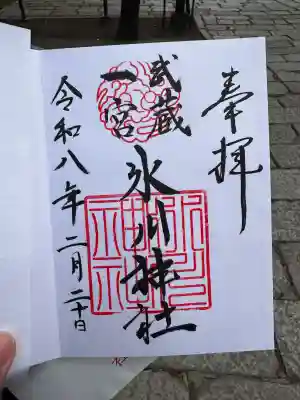 奉拝
武蔵
一宮
氷川神社
令和八年二月二十日